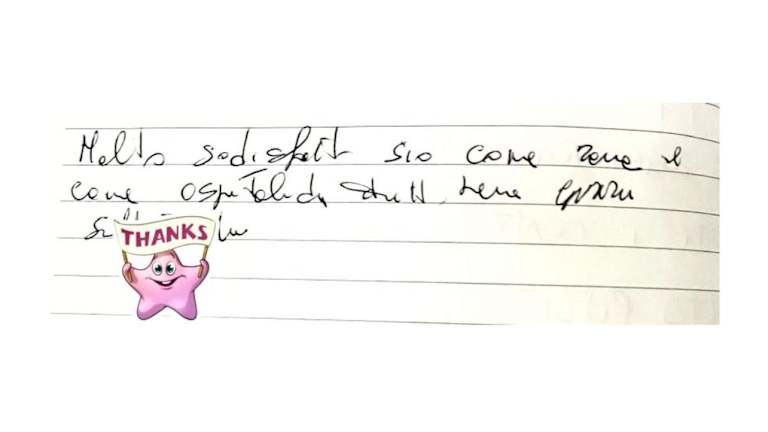 Molto sodisfatti sia come zona e
come ospitalità tutto bene grazie
THANKS